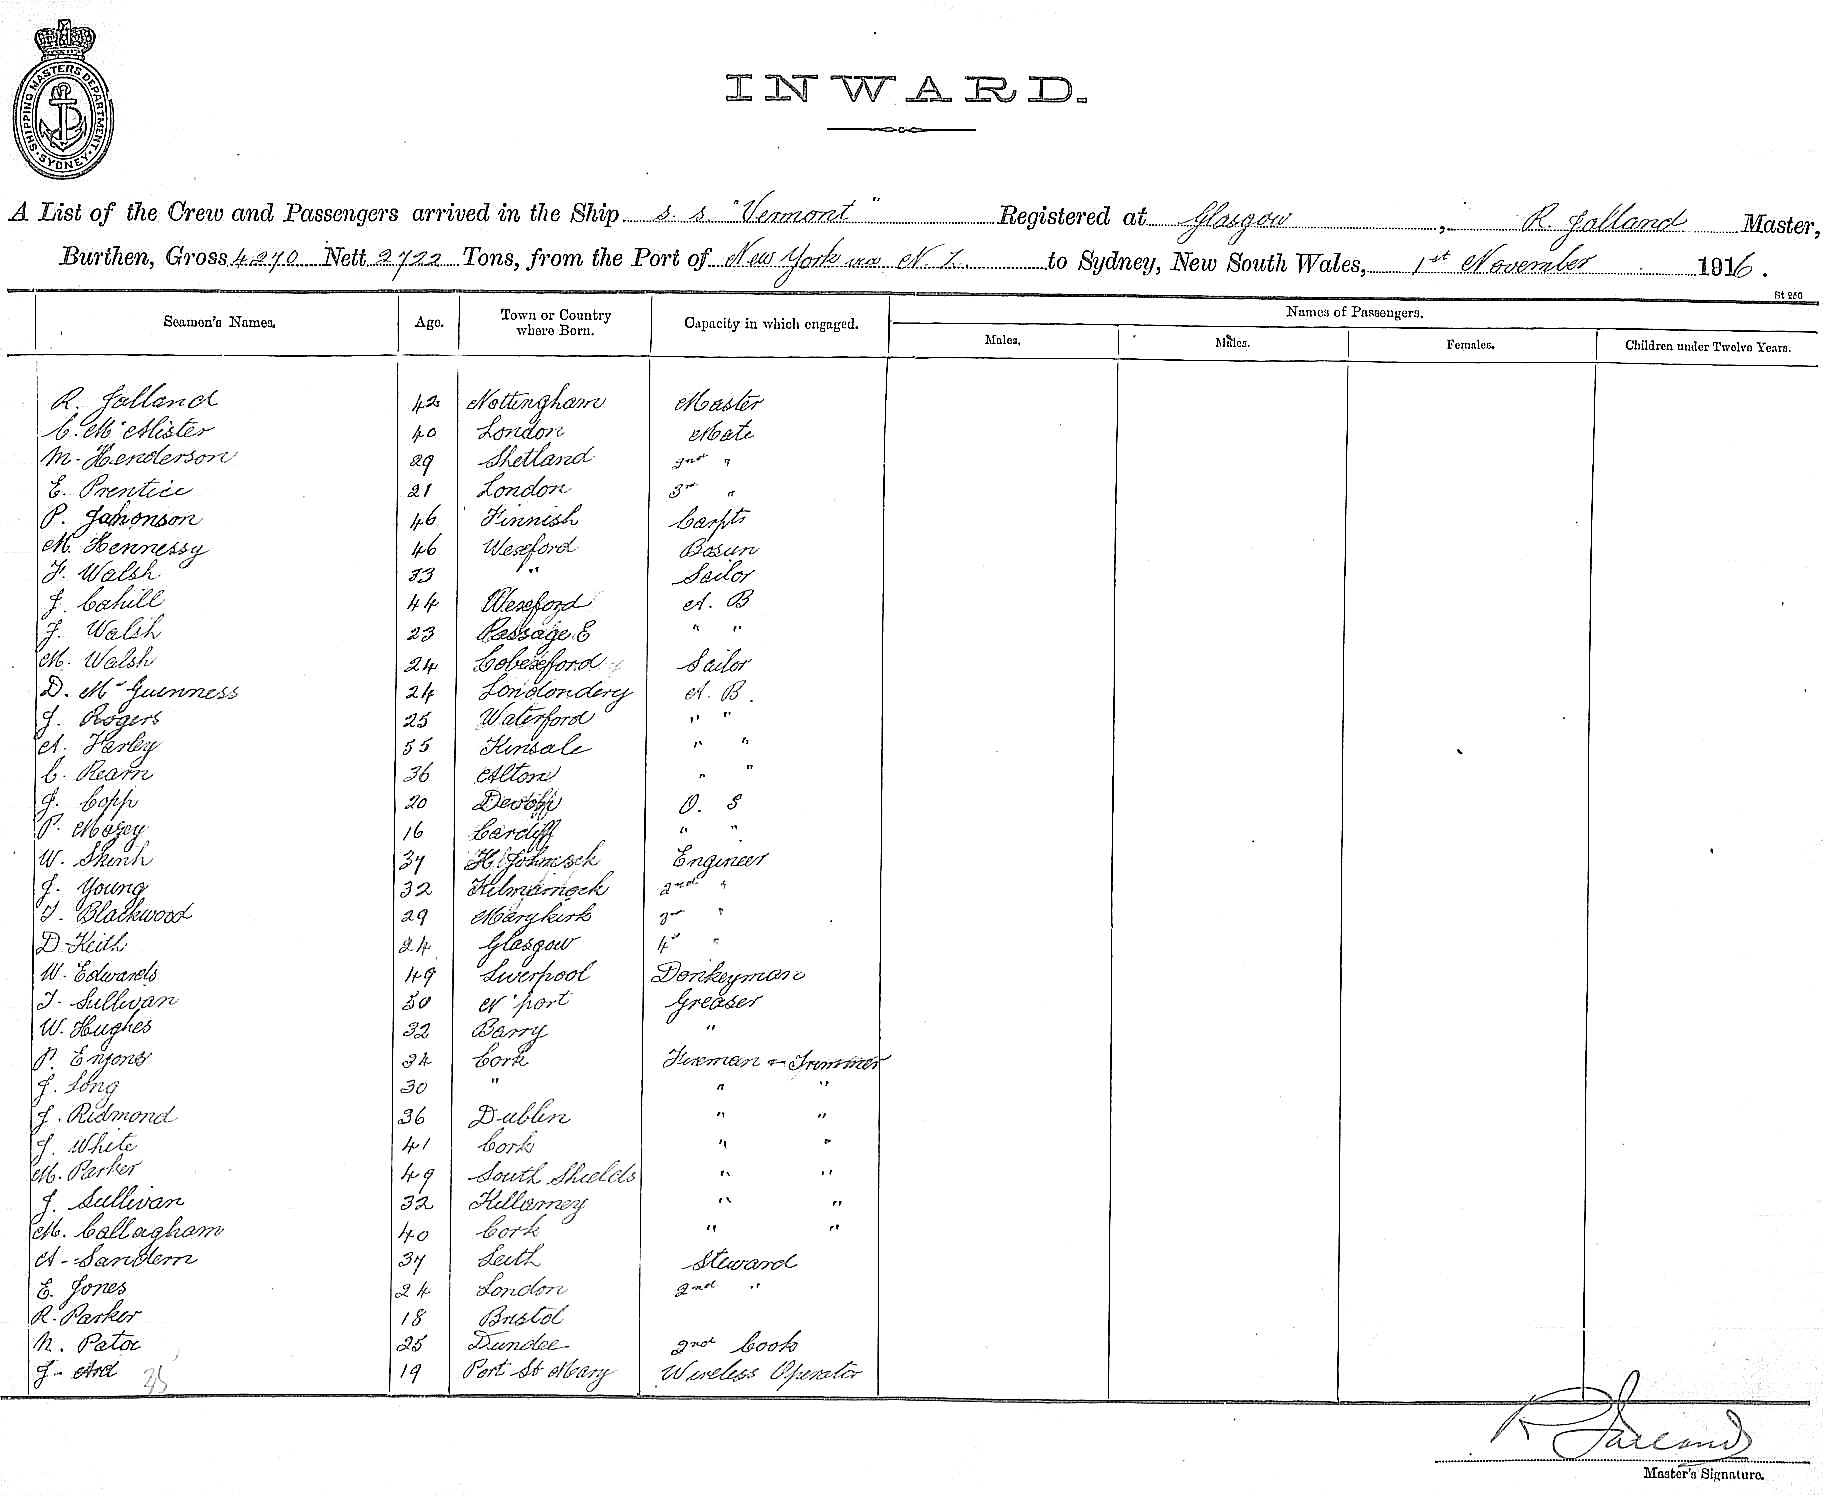 SHIPPING MASTERS DEPARTMENT · SYDNEY ·
INWARD.
A List of the Crew and Passengers arrived in the Ship s. s "Vermont" Registered at Glasgow, R. Jalland Master,
Burthen, Gross 4270 Nett 2722 Tons, from the Port of New York via N. Z. to Sydney, New South Wales, 1st November 1916.
St 250
Seamen's Names. Age. Town or Country where Born. Capacity in which engaged. Names of Passengers.
Males. Males. Females. Children under Twelve Years.
R. Jalland 42 Nottingham Master
C. McAlister 40 London Mate
M. Henderson 29 Shetland 2nd "
E. Prentice 21 London 3rd "
P. Johonson 46 Finnish Carptr
M. Hennessy 46 Wexford Bosun
F. Walsh 33 " Sailor
J. Cahill 44 Wexford A. B
J. Walsh 23 Passage E " "
M. Walsh 24 Sailor
D. McGuinness 24 Londondery A. B.
J. Rogers 25 Waterford " "
A. Harley 55 Kinsale " "
C. Rearn 36 Alton " "
J. Copp 20 O. S
P. Mozey 16 Cardiff " "
W. 37 Engineer
J. Young 32 Kilmarnock 2nd "
J. Blackwood 29 Marykirk 3rd "
D. Keith 24 Glasgow 4th "
W. Edwards 49 Liverpool Donkeyman
J. Sullivan 30 N'port Greaser
W. Hughes 32 Barry "
P. 34 Cork Fireman & Trimmer
J. Long 30 " " "
J. Ridmond 36 Dublin " "
J. White 41 Cork " "
M. Parker 49 South Shields " "
J. Sullivan 32 Killarney " "
M. Callagham 40 Cork " "
A. Sandem 37 Leith Steward
E. Jones 24 London 2nd "
R. Parker 18 Bristol
N. 25 Dundee 2nd Cook
J. Ard 19 Port St Mary Wireless Operator
35
R Jalland
Master's Signature.